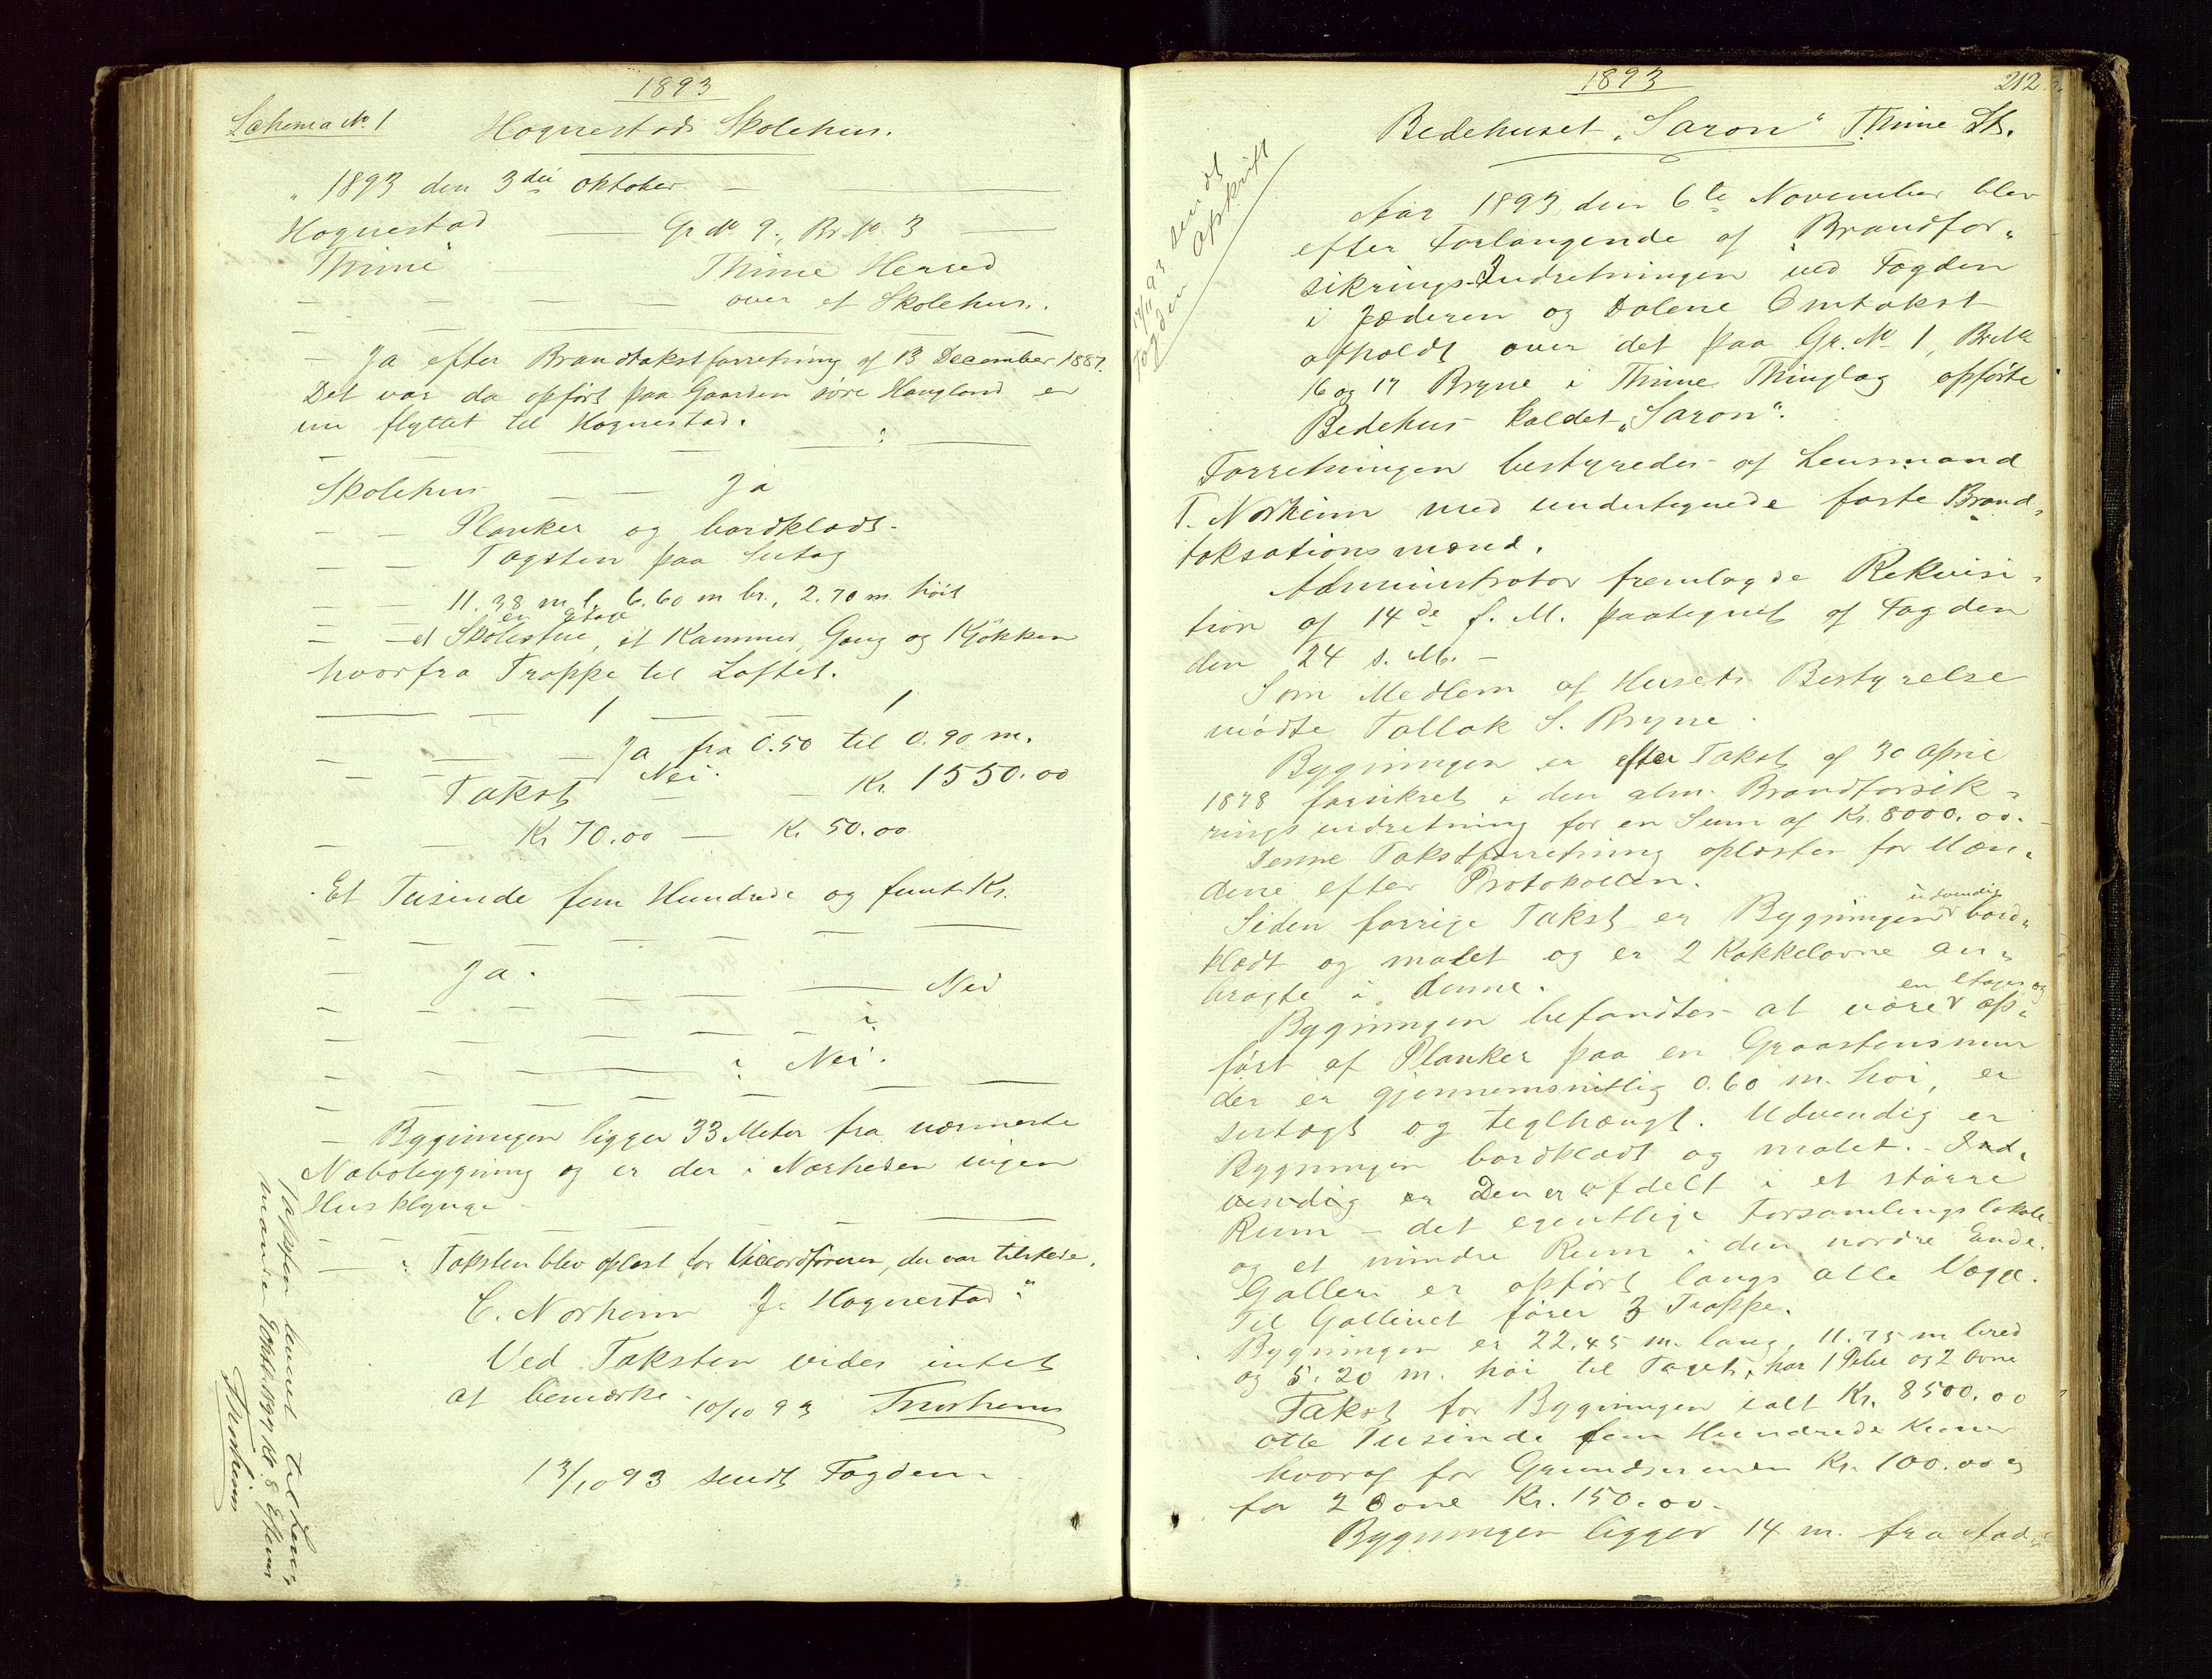 1893
Schema No 1
Hognestads Skolehus.
„ 1893 den 3die Oktober —
Hognestad — Gr No 9., Br. No 3 —
Thime — Thime Herred
— — — — over et Skolehus.
— Ja efter Brandtakstforretning af 13 December 1887.
Det var da opført paa Gaarden søre Haugland er
nu flyttet til Hognestad.
Skolehus — — Ja
— — Planker og bordklædt.
— — Tagsten paa Sutag
— — 11.38 m l. 6.60 m br., 2.70 m høit
en Etage
— — et Skolestue, et Kammer, Gang og Kjøkken
hvorfra Trappe til Loftet.
— — 1 — — 1
— — — Ja fra 0.50 til 0.90 m.
Nei.
Takst — — Kr. 1550.00
— — Kr 70.00 — Kr 50.00
Et Tusinde fem Hundrede og femti Kr.
— Ja.
— Nei
— Nei.
— Bygningen ligger 33 Meter fra nærmeste
Nabobygning og er der i Nærheden ingen
Husklynge —
— „ Taksten blev oplæst for Viceordføreren, der var tilstede.
C. Norheim J. Hognestad“
Ved Taksten vides intet
at bemærke. 10/10 93 TNorheim
13/10 93 sendt Fogden.
Taksten leveret til Lens-
manden Kl. 8 Efterm
TNorheim
1893
212
Bedehuset „Saron“ Thime St.
17/11 93 sendt
Fogden Afskrift
Aar 1893 den 6te November blev
efter Forlangende af Brandfor-
sikrings-Indretningen ved Fogden
i Jæderen og Dalene Omtakst
afholdt over det paa Gr. No 1, Br No
16 og 17 Bryne i Thime Thinglag opførte
Bedehus kaldet „Saron“.
Forretningen bestyredes af Lensmand
T. Norheim med undertegnede faste Brand-
taksationsmænd.
Administrator fremlagde Rekvisi-
tion af 14de f. M. paategnet af Fogden
den 24 s. M. —
Som Medlem af Husets Bestyrelse
mødte Tallak S. Bryne.
Bygningen er efter Takst af 30 April
1878 forsikret i den alm. Brandforsik-
rings indretning for en Sum af Kr. 8000.00. —
Denne Takstforretning oplæstes for Mæn-
dene efter Protokollen.
udvendig
Siden forrige Takst er Bygningen bord-
klædt og malet og er 2 Kakkelovne an-
bragte i denne.
en etages og
Bygningen befandtes at være op-
ført af Planker paa en Graastensmur
der er gjennemsnitlig 0.60 m. høi, er
sutagt og teglhængt. Udvendig er
Bygningen bordklædt og malet. Ind-
vendig er Den er afdelt i et større
Rum — det egentlige Forsamlingslokale
og et mindre Rum i den nordre Ende.
Galleri er opført langs alle Vægge.
Til Galleriet fører 3 Trappe.
Bygningen er 22.45 m. lang, 11.75 m bred
og 5.20 m. høi til Taget, har 1 Pibe og 2 Ovne
Takst for Bygningen ialt Kr. 8500.00
otte Tusinde fem Hundrede Kroner
hvoraf for Grundmuren Kr. 100.00 og
for 2 Ovne Kr. 150.00.
Bygningen ligger 14 m. fra